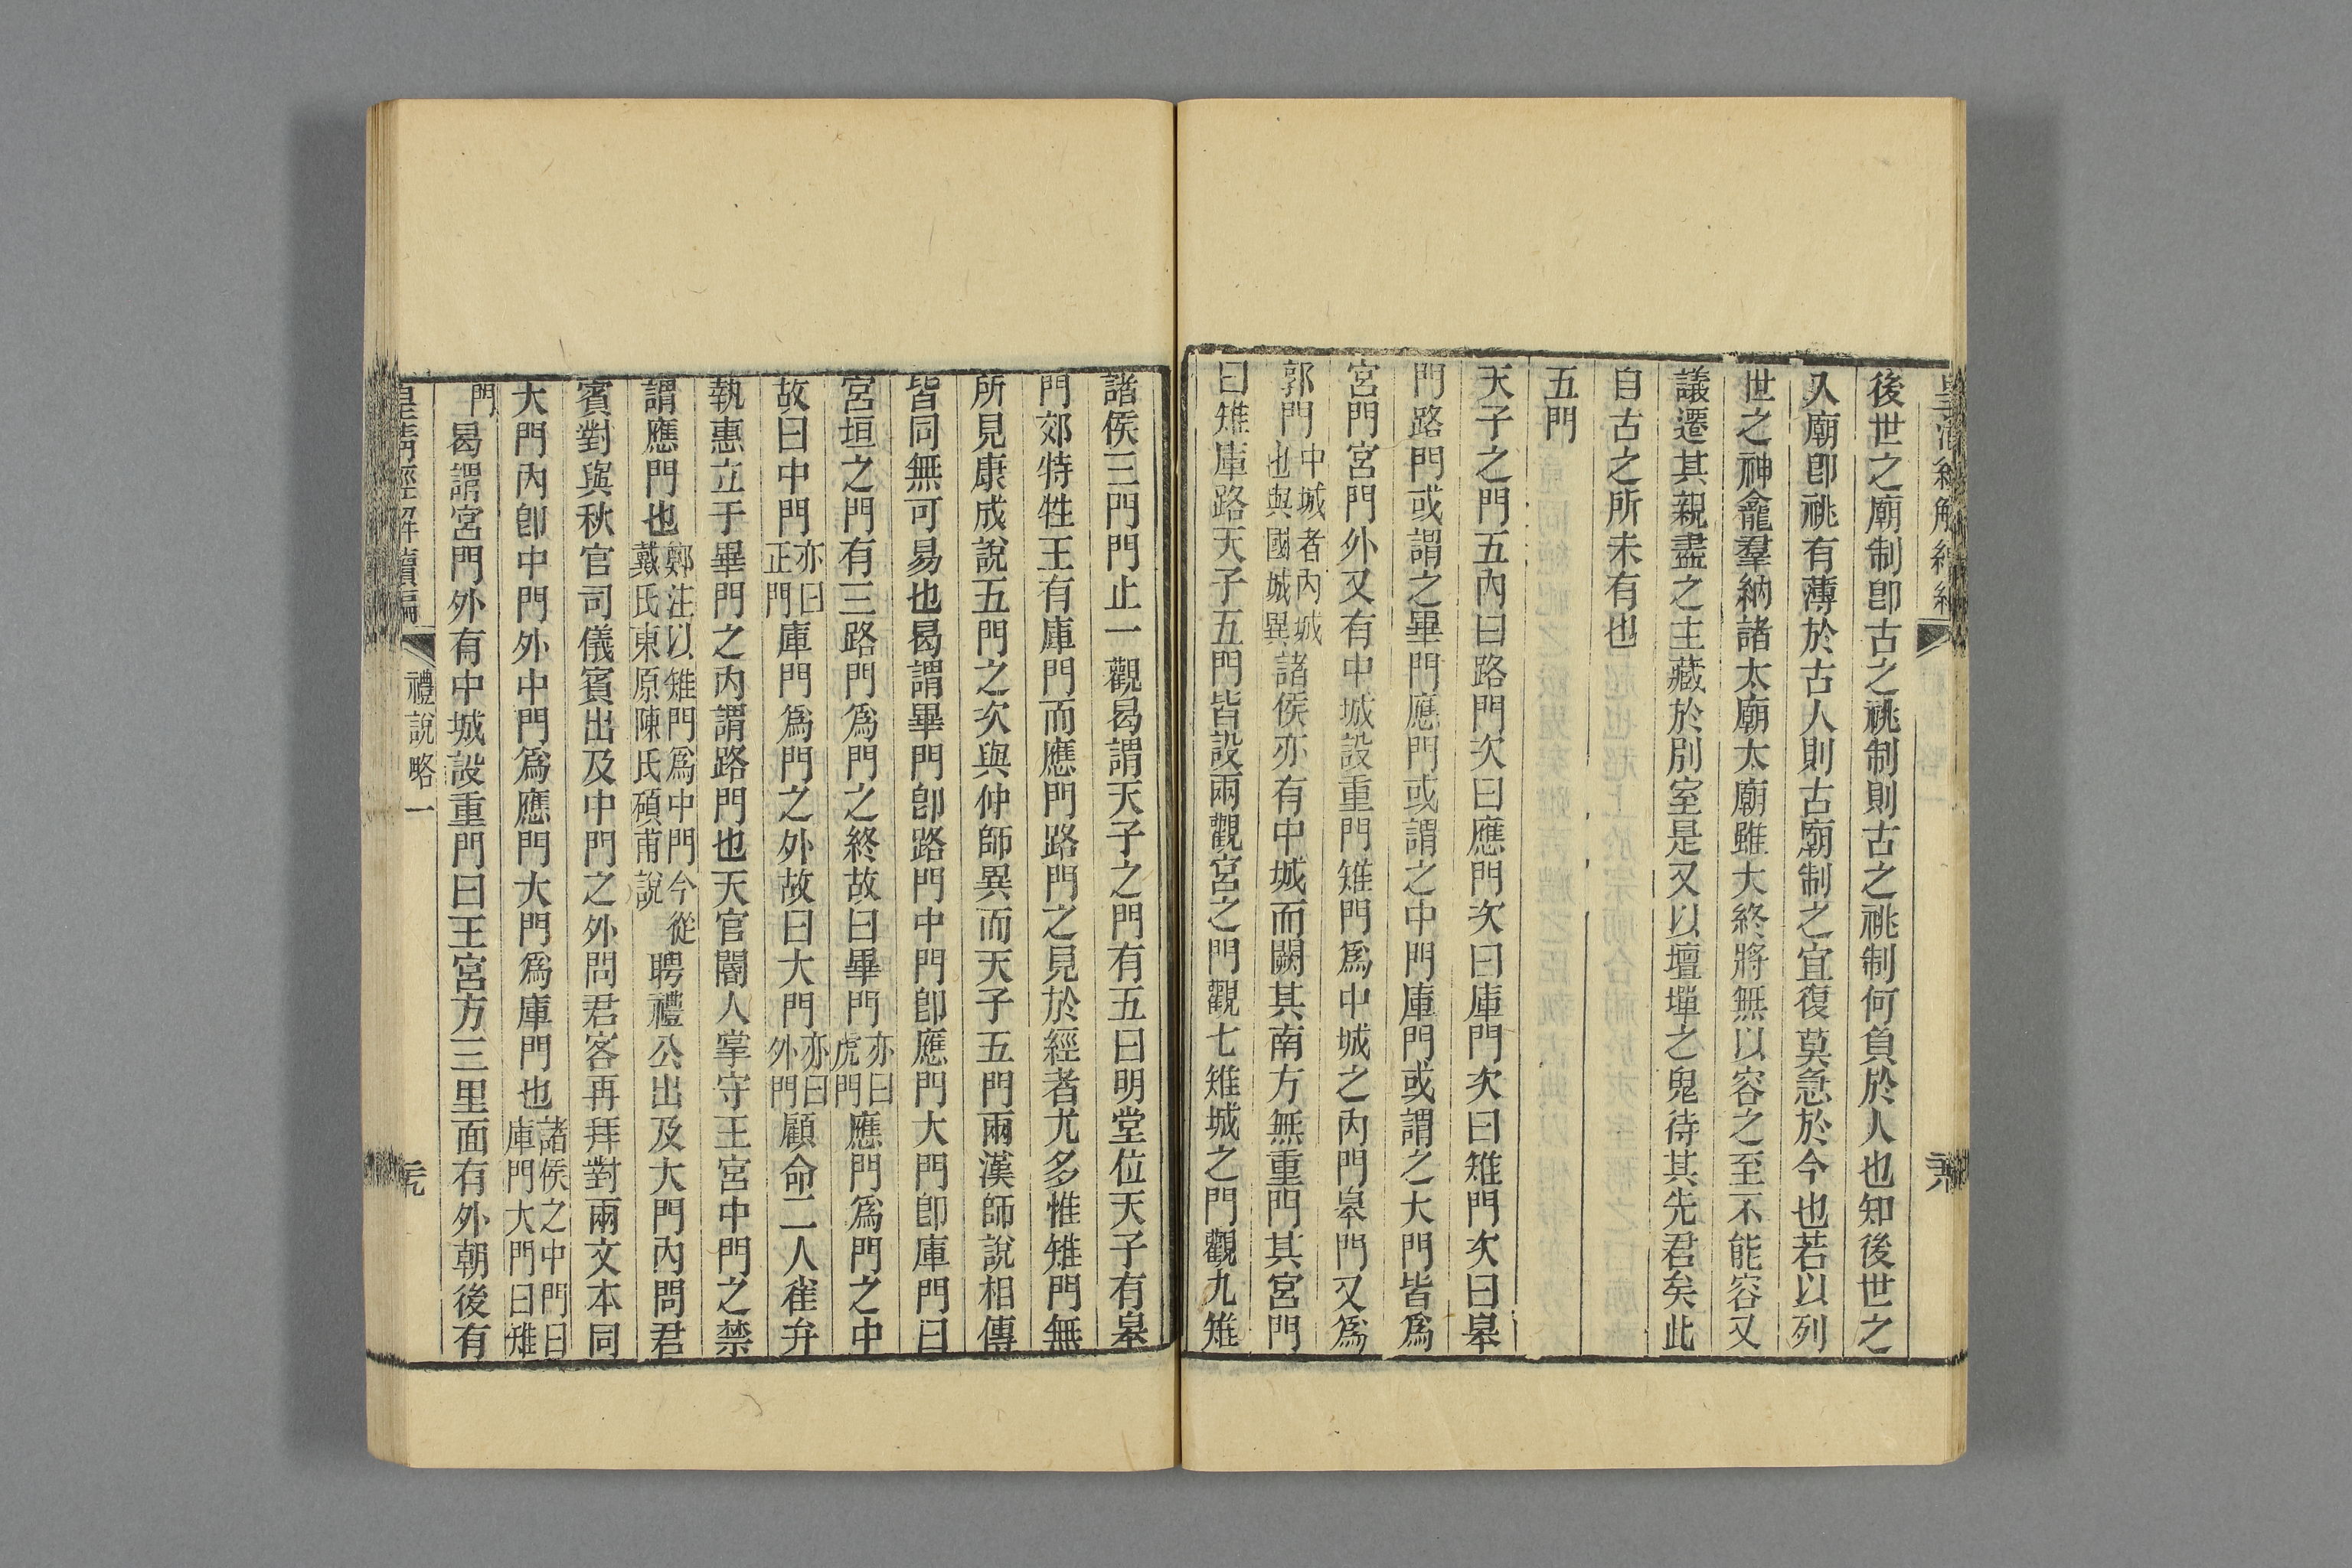 後世之廟制卽古之祧制則古之祧制何負於人也知後世之
人廟卽祧有薄於古人則古廟制之宜復莫急於今也若以列
世之神龕羣納諸太廟太廟雖大終將無以容之至不能容又
議遷其親盡之主藏於別室是又以壇墠之鬼待其先君矣此
自古之所未有也
五門
天子之門五內曰路門次曰應門次曰庫門次曰雉門次曰皋
門路門或謂之畢門應門或謂之中門庫門或謂之大門皆爲
宮門宮門外又有中城設重門雉門爲中城之內門皋門又爲
郭門中城者內城也與國城異諸侯亦有中城而闕其南方無重門其宮門
曰雉庫路天子五門皆設兩觀宮之門觀七雉城之門觀九雉
諸侯三門門止一觀曷謂天子之門有五曰明堂位天子有皋
門郊特牲王有庫門而應門路門之見於經者尤多惟雉門無
所見康成說五門之次與仲師異而天子五門兩漢師說相傳
皆同無可易也曷謂畢門卽路門中門卽應門大門卽庫門曰
宮垣之門有三路門爲門之終故曰畢門亦曰虎門應門爲門之中
故曰中門亦曰正門庫門爲門之外故曰大門亦曰外門顧命二人雀弁
執惠立于畢門之內謂路門也天官閽人掌守王宮中門之禁
謂應門也鄭注以雉門爲中門今從戴氏東原陳氏碩甫說聘禮公出及大門內問君
賓對與秋官司儀賓出及中門之外問君客再拜對兩文本同
大門內卽中門外中門爲應門大門爲庫門也諸侯之中門曰庫門大門曰雉
門曷謂宮門外有中城設重門曰王宮方三里面有外朝後有
皇清經解續編
禮說略一